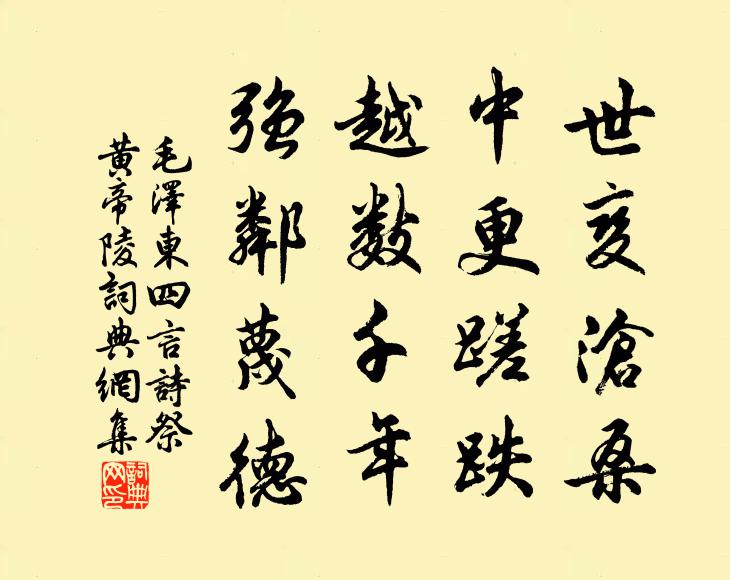 世变滄桑
中更蹉跌
越數千年
強鄰蔑德
毛澤東四言詩祭
黃帝陵詞典網集
詞典
网印